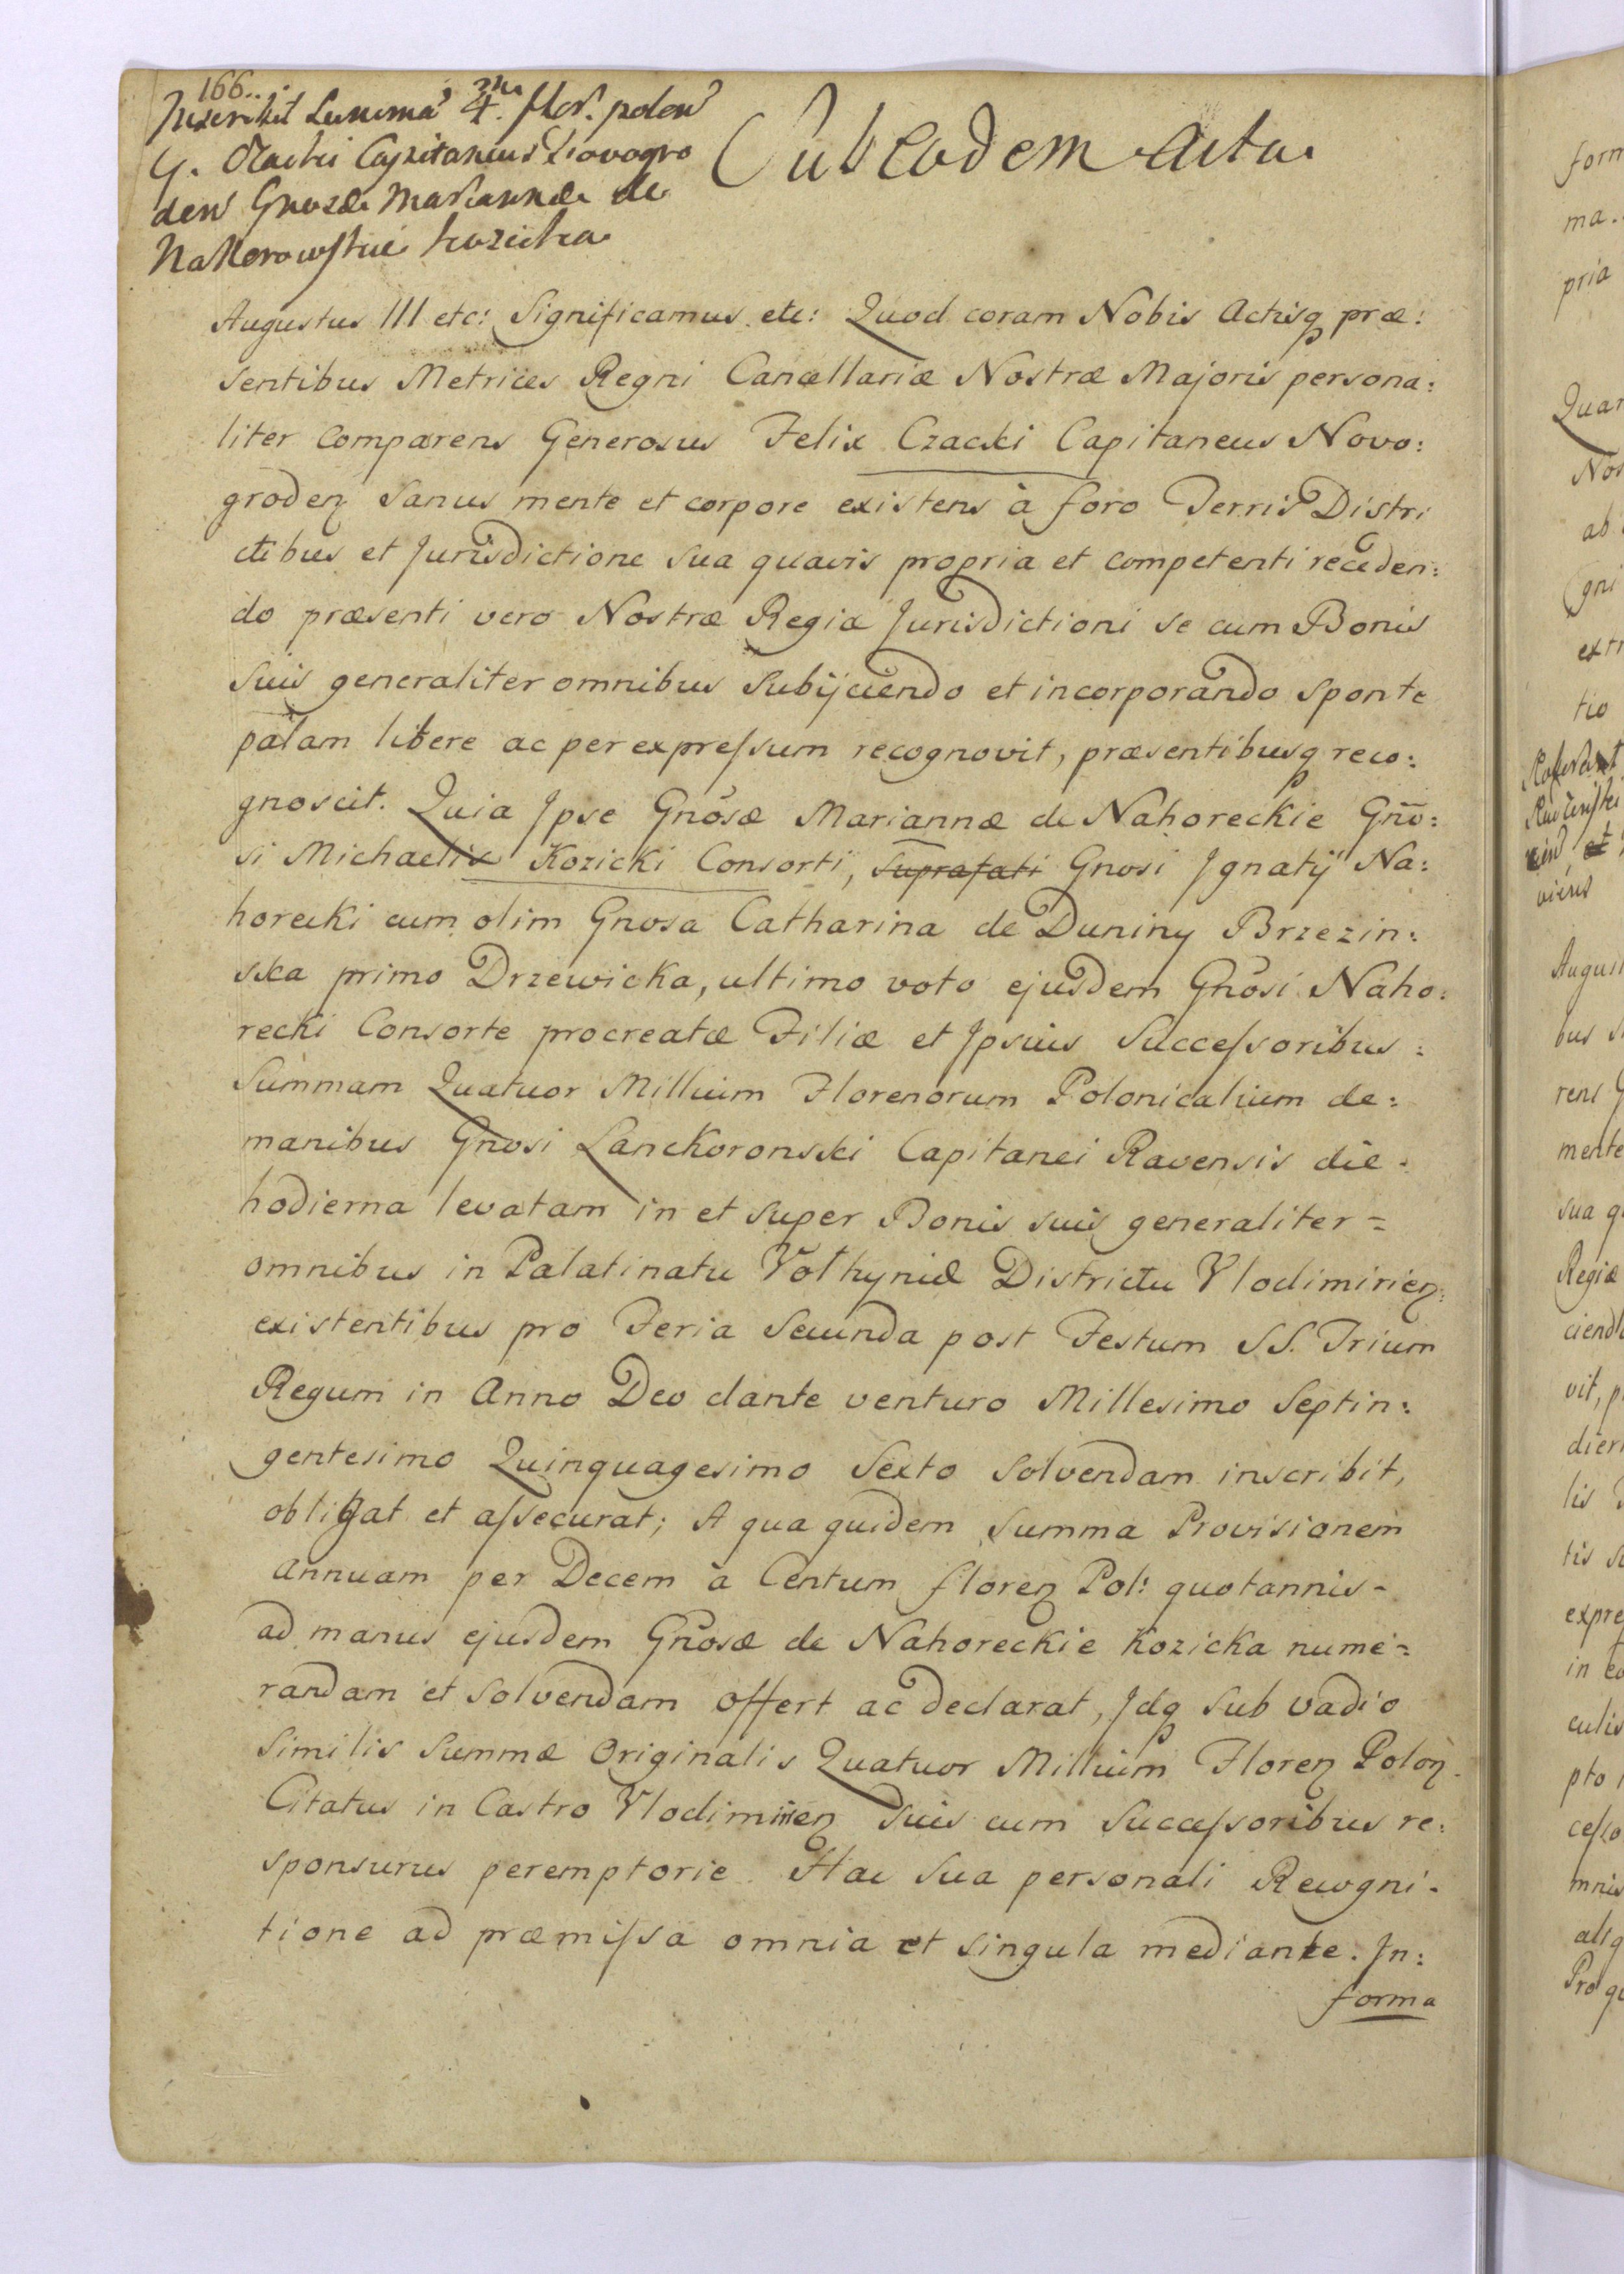 166.
Inscribit Summā 4. m flor. polon
G. Czacki Capitaneus Novogro
den Gnosæ Mariannæ de
Nahorowskie Kozicka
Sub Eodem Actu
Augustus III etc: Significamus etc: Quod coram Nobis Actisq præ:
sentibus Metrices Regni Cancellariæ Nostræ Majoris persona:
liter Comparens Generosus Felix Czacki Capitaneus Novo:
groden Sanus mente et corpore existens à foro Terris Distri
ctibus et Jurisdictione sua quavis propria et competenti receden:
do præsenti vero Nostræ Regiæ Jurisdictioni se cum Bonis
suis generaliter omnibus Subijciendo et incorporando sponte
palam libere ac per expressum recognovit, præsentibusq reco:
gnoscit. Quia Ipse Gnosæ Mariannæ de Nahoreckie Gno:
si Michaelis Kozicki Consorti, suprafati Gnosi Ignatij Na:
horecki cum olim Gnosa Catharina de Duniny Brzezin:
ska primo Drzewicka, ultimo voto ejusdem Gnosi Naho:
recki Consorte procreatæ Filiæ et Ipsius Successoribus:
Summam Quatuor Millium Florenorum Polonicalium de:
manibus Gnosi Lanckoronski Capitanei Ravensis die
hodierna levatam in et super Bonis suis generaliter =
omnibus in Palatinatu Volhyniæ Districtu Vlodimirien:
existentibus pro Feria Secunda post Festum SS. Trium
Regum in Anno Deo dante venturo Millesimo Septin:
gentesimo Quinquagesimo Sexto solvendam inscribit,
obligat et assecurat; A qua quidem Summa Provisionem
Annuam per Decem à Centum floren Pol: quotannis -
ad manus ejusdem Gnosæ de Nahoreckie Kozicka nume =
randam et solvendam offert ac declarat, Idq sub vadio
similis Summæ Originalis Quatuor Millium Floren Polon.
Citatus in Castro Vlodimirien Suis cum Successoribus re:
sponsurus peremptorie. Hac sua personali Recogni-
tione ad præmissa omnia et singula mediante. In:
forma